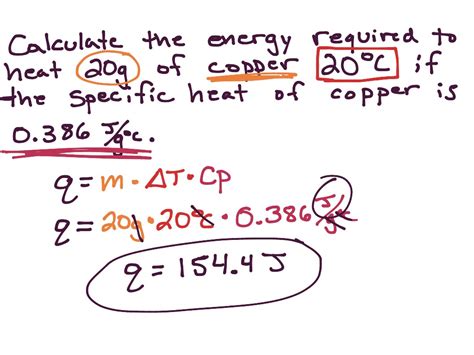 Calculate the energy required to
heat 20g of copper 20°C ; if
the specific heat of copper is
0.386 J/g°c.
q = m • ΔT • Cp
q = 20g • 20°c • 0.386 J/g°c
q = 154.4 J